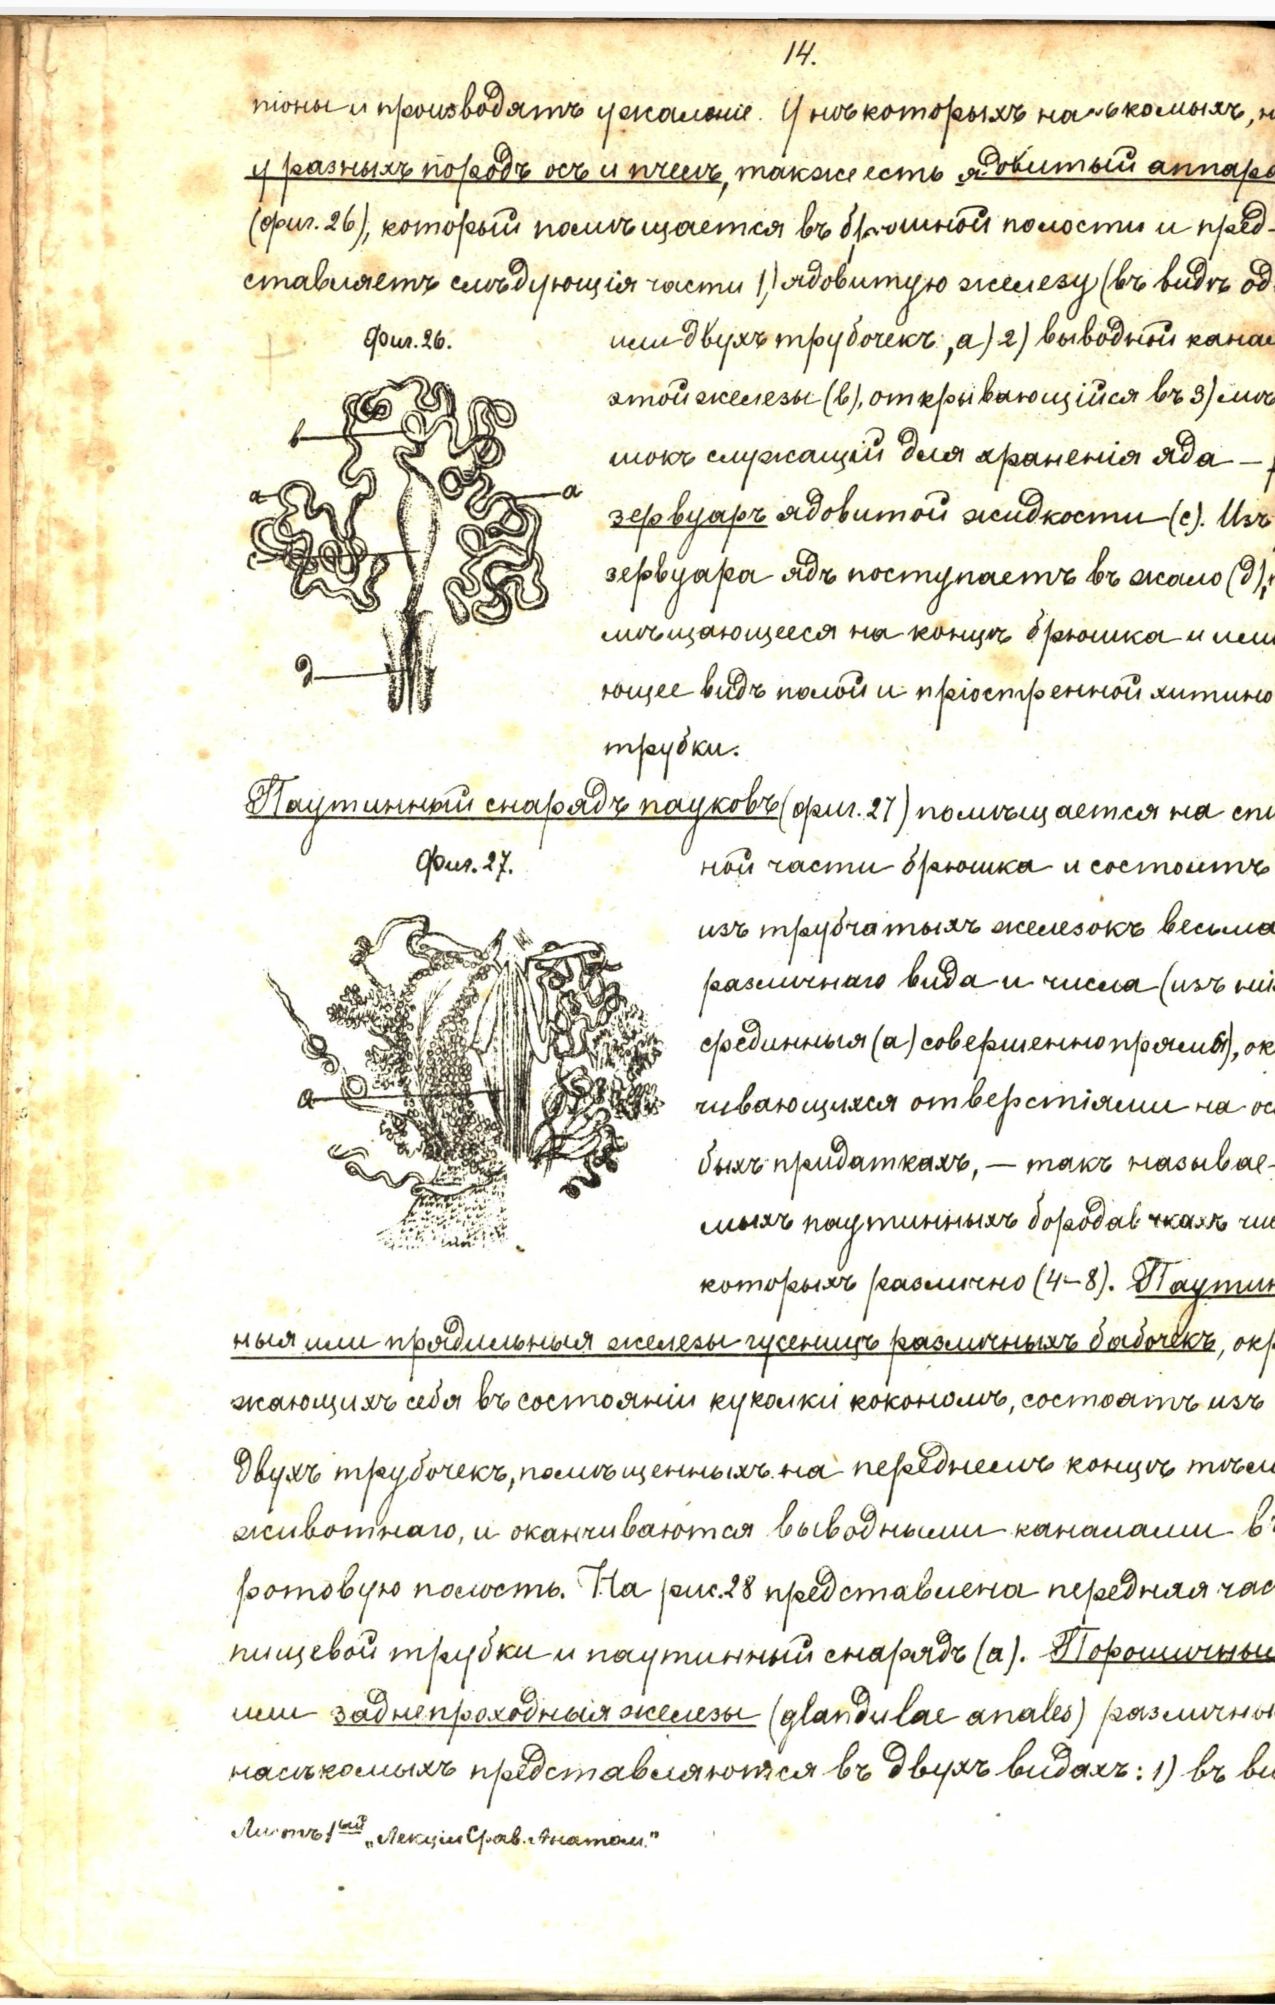 14.
піоны и производятъ ужаленіе. У нѣкоторыхъ насѣкомыхъ, н
у разныхъ породъ осъ и пчелъ, также есть ядовитый аппара
(фиг. 26), который помѣщается въ брюшной полости и пред-
ставляетъ слѣдующія части 1) ядовитую железу (въ видѣ од
Фиг. 26.
или двухъ трубочекъ, а) 2) выводной кана
этой железы (в), открывающійся въ 3) мѣ
шокъ служащій для храненія яда —
зервуаръ ядовитой жидкости (с). Изъ
зервуара ядъ поступаетъ въ жало (д),
мѣщающееся на концѣ брюшка и имѣ
ющее видъ полой и пріостренной хитино
трубки.
в
а
а
с
д
Паутинный снарядъ пауковъ (фиг. 27) помѣщается на спи
Фиг. 27.
ной части брюшка и состоитъ
изъ трубчатыхъ железокъ весьма
различнаго вида и числа (изъ ни
срединныя (а) совершенно прямы), ок
чивающихся отверстіями на ос
быхъ придаткахъ, — такъ называе-
мыхъ паутинныхъ бородавчкахъ чис
которыхъ различно (4–8). Паутин
а
ныя или прядильныя железы гусеницъ различныхъ бабочекъ, окр
жающихъ себя въ состояніи куколки кокономъ, состоятъ изъ
двухъ трубочекъ, помѣщенныхъ на переднемъ концѣ тѣл
животнаго, и оканчиваются выводными каналами въ
ротовую полость. На рис. 28 представлена передняя час
пищевой трубки и паутинный снарядъ (а). Порошичны
или заднепроходныя железы (glandulae anales) различны
насѣкомыхъ представляются въ двухъ видахъ: 1) въ ви
Листъ 1ый „Лекціи Срав. Анатом."